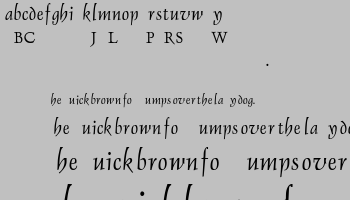 abcdefghi klmnop rstuvw y
BC J L P RS W
.
he uickbrownfo umpsoverthela ydog.
he uickbrownfo umpsoverthela ydo
he uickbrownfo umpsover